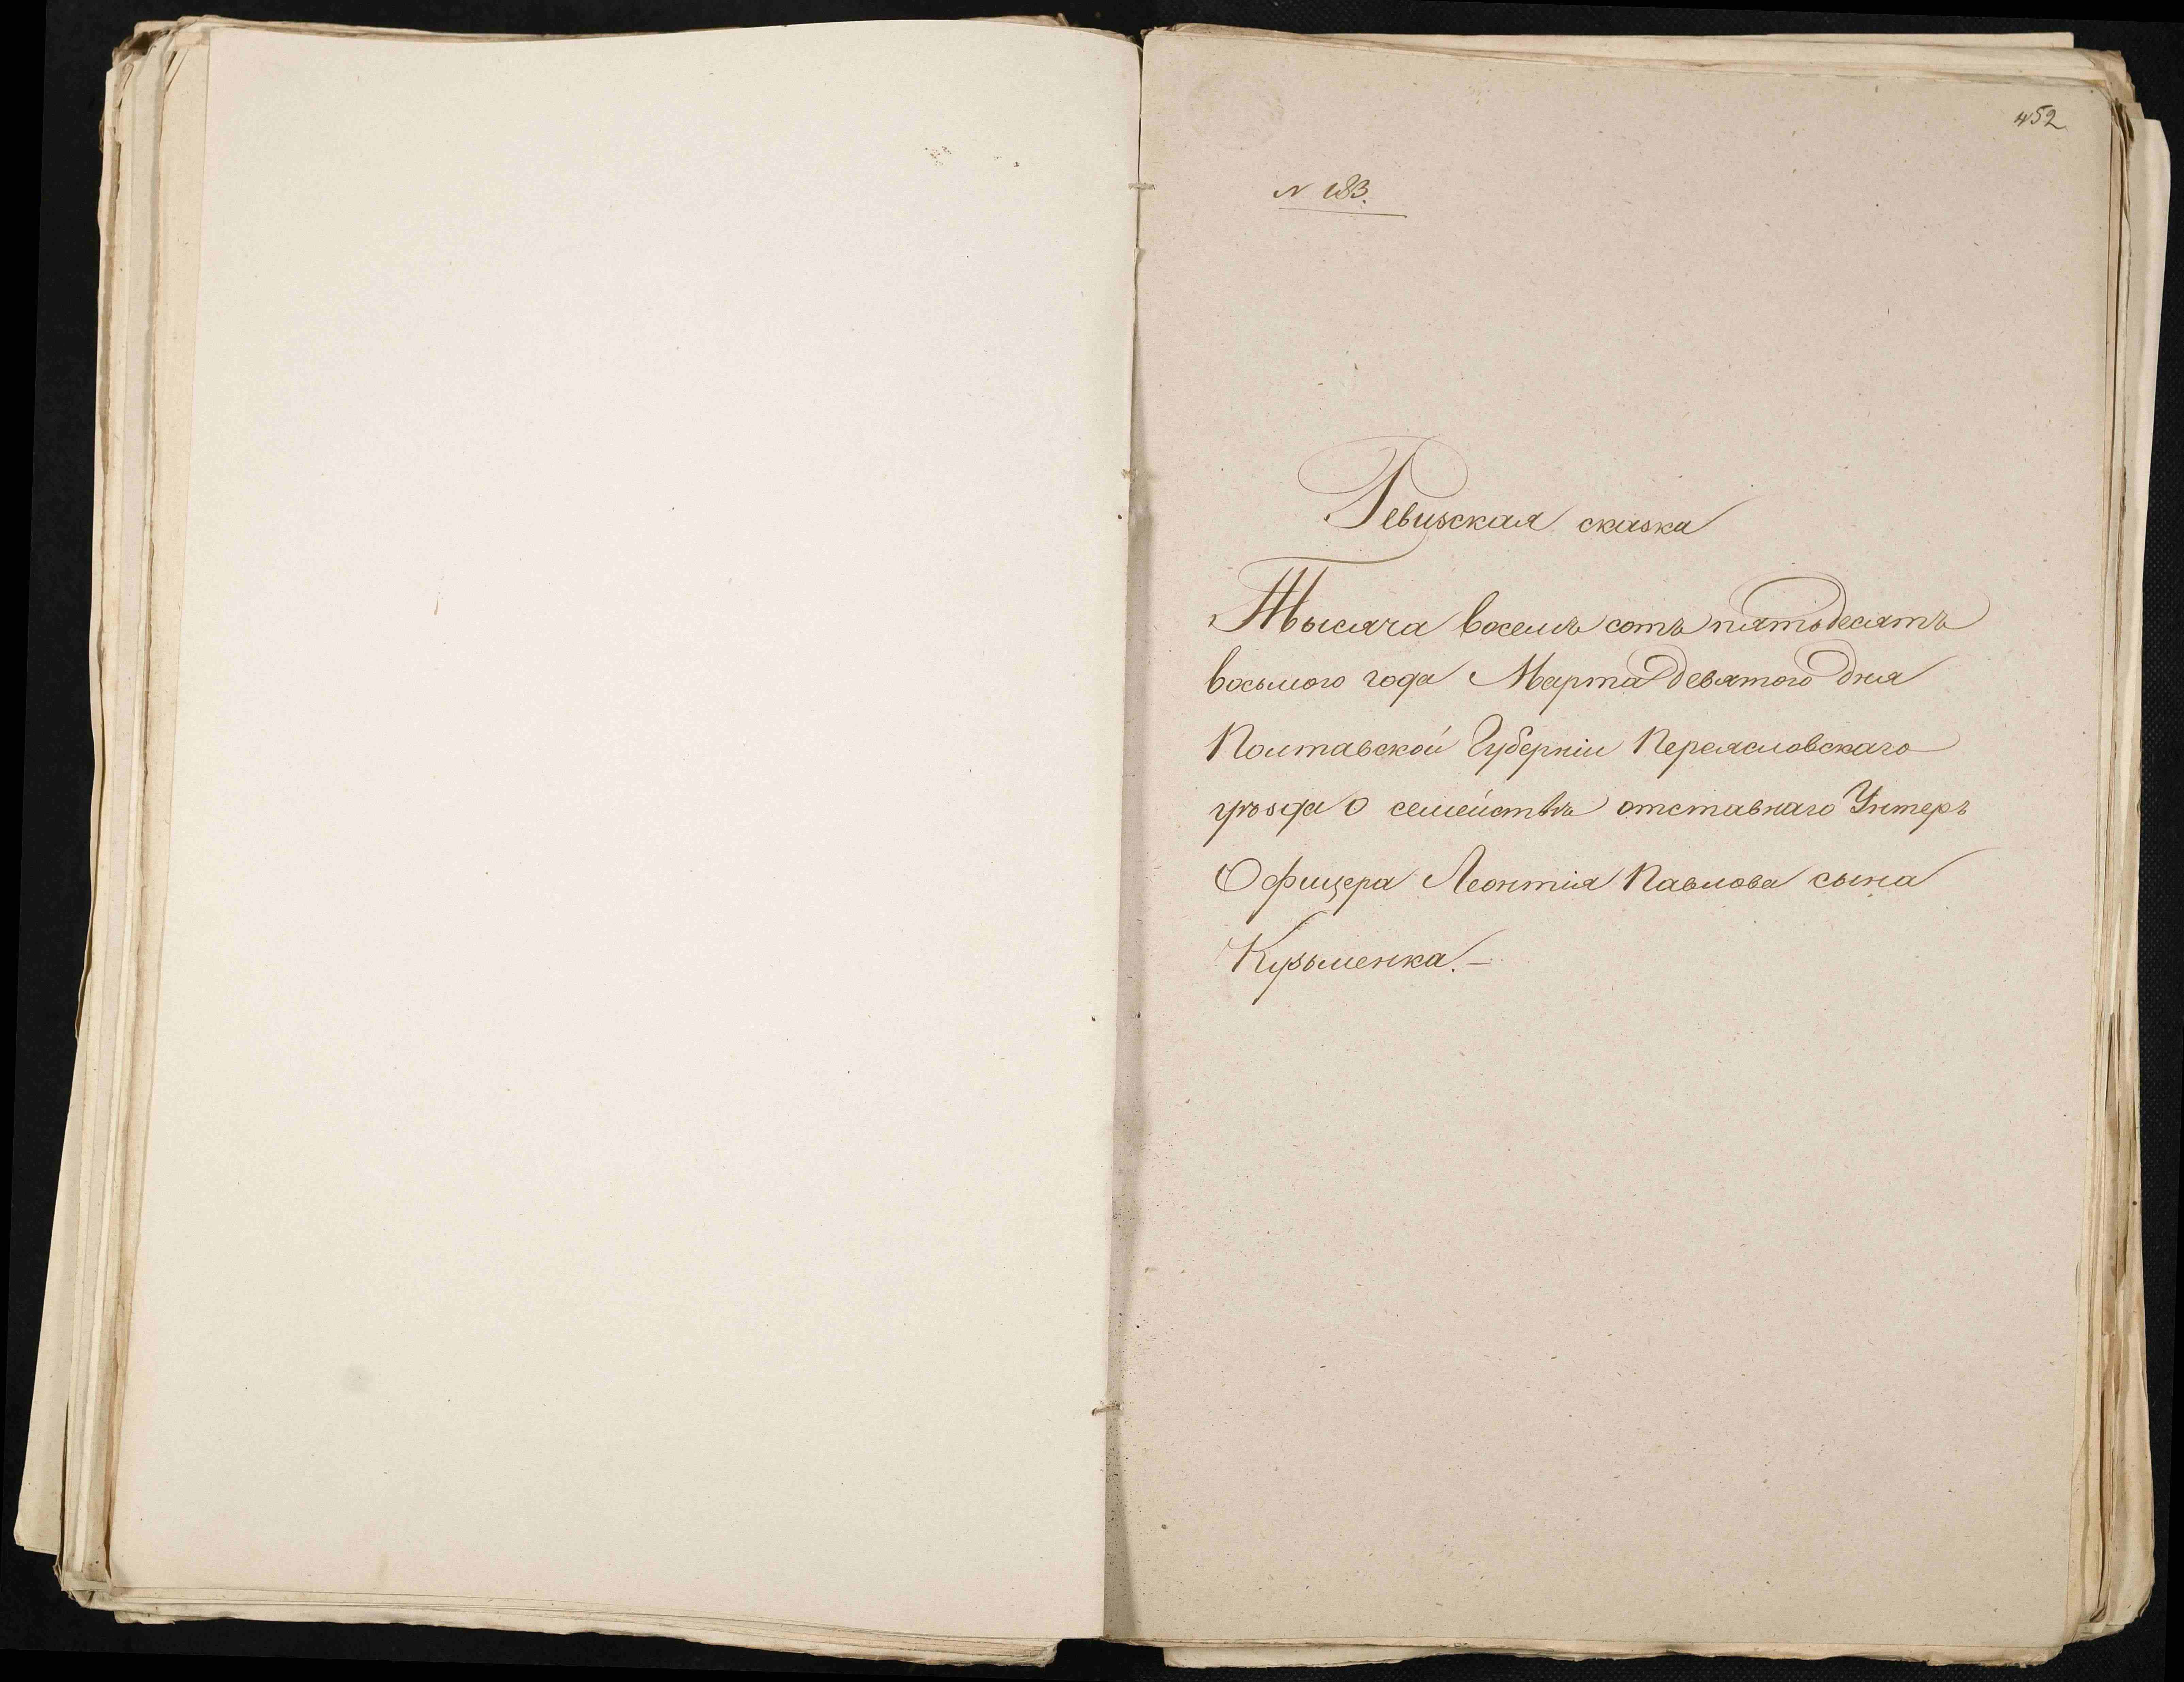 452
N 183.
Ревизская сказка
Тысяча восемь сотъ пятьдесятъ
восьмого года Марта девятого дня
Полтавской Губерніи Переясловскаго
уѣзда о семействѣ отставнаго Унтеръ
Офицера Леонтія Павлова сына
Кузьменка.–